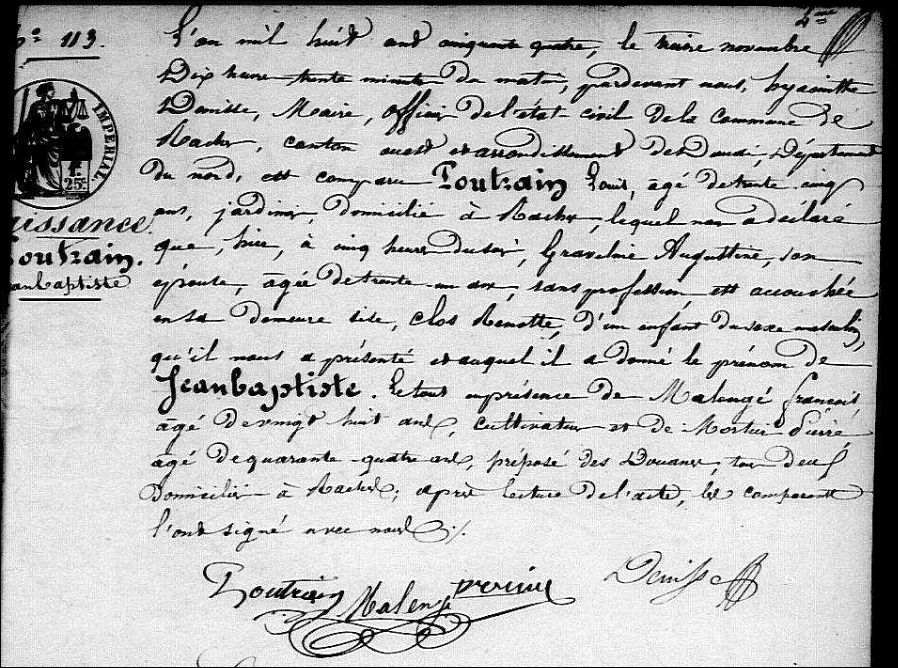 4me
No 113.
L'an mil huit cent cinquante quatre, le treize novembre
Dix heures trente minutes du matin, pardevant nous, hyacinthe
Denisse, Maire, officier de l'état-civil de la Commune de
Raches, canton ouest et arrondissement de Douai, Département
du nord, est comparu Poutrain Louis, âgé de trente cinq
ans, jardinier, domicilié à Raches, lequel nous a déclaré
que, hier, à cinq heures du soir, Graveline Augustine, son
épouse, âgée de trente-un ans, sans profession est accouchée
en sa demeure sise, clos Renotte, d'un enfant du sexe masculin,
qu'il nous a présenté et auquel il a donné le prénom de
Jeanbaptiste. Le tout en présence de Malengé françois,
âgé de vingt huit ans, cultivateur et de Mortier
âgé de quarante-quatre ans, préposé des Douanes, tous deux
Domiciliés à Raches; après lecture de l'acte, les comparants
l'ont signé avec nous ./.
IMPERIAL.
1F.
25C.
Naissance
Poutrain.
Jeanbaptiste
Poutrain Malengé Denisse